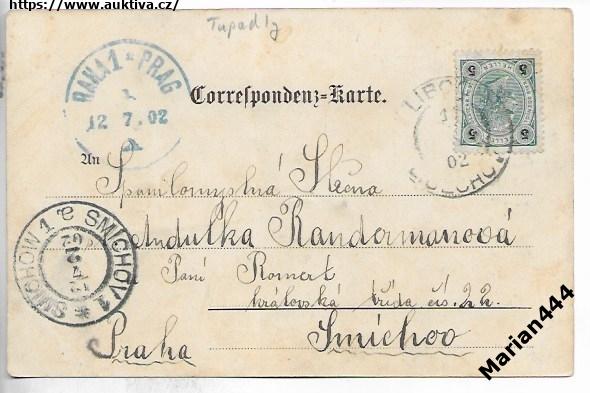 https://www.auktiva.cz/
Tupadly
PRAHA 1 * PRAG
12 7. 02
Correspondenz=Karte.
An
5 5
5 5
LIBO
02
Spanilomyslná Slečna
Andulka Randormanová
Paní Romert
královská třída čís. 22.
Praha Smíchov
SMICHOW 1 * SMÍCHOV 1
Marian444